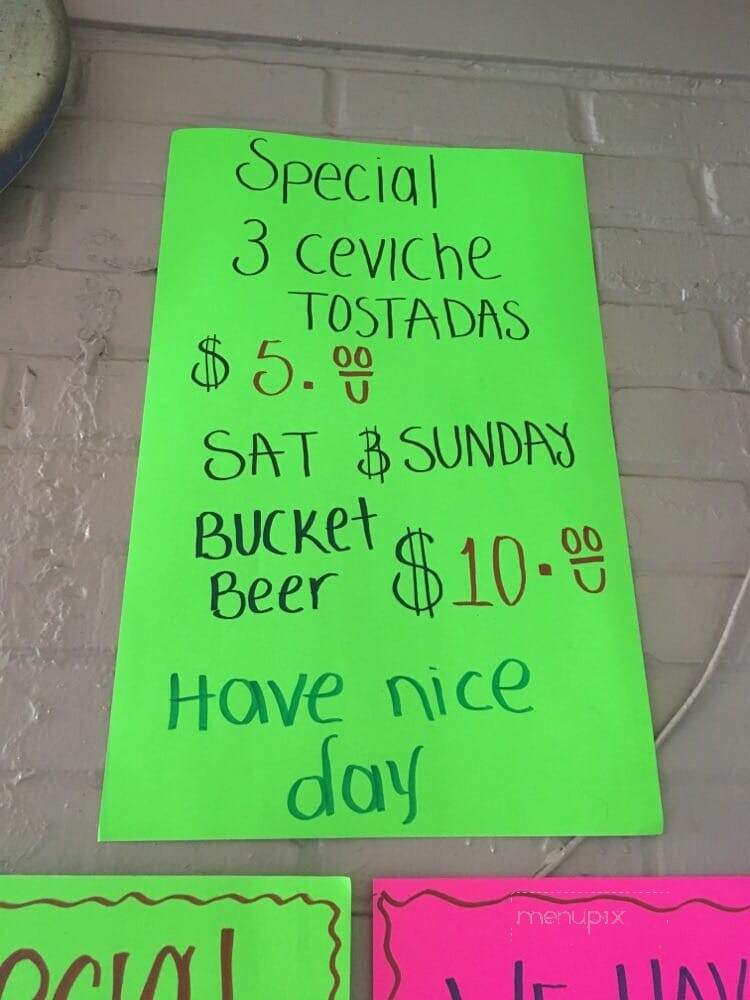 Special
3 Ceviche
TOSTADAS
$ 5.00
SAT & SUNDAY
BUCKet
Beer $10.00
Have nice
day
menupix
WE HAV